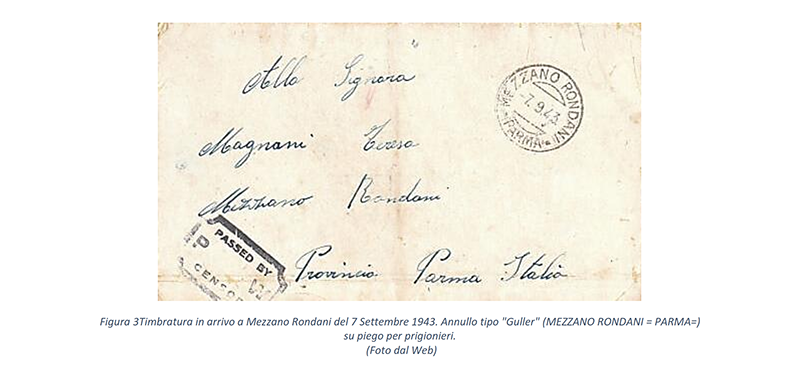 Alla Signora
MEZZANO RONDANI
-7.9.43
=PARMA=
Magnani Teresa
Mezzano Rondani
P
PASSED BY
CENSOR
Provincia Parma Italia
Figura 3Timbratura in arrivo a Mezzano Rondani del 7 Settembre 1943. Annullo tipo "Guller" (MEZZANO RONDANI = PARMA=)
su piego per prigionieri.
(Foto dal Web)